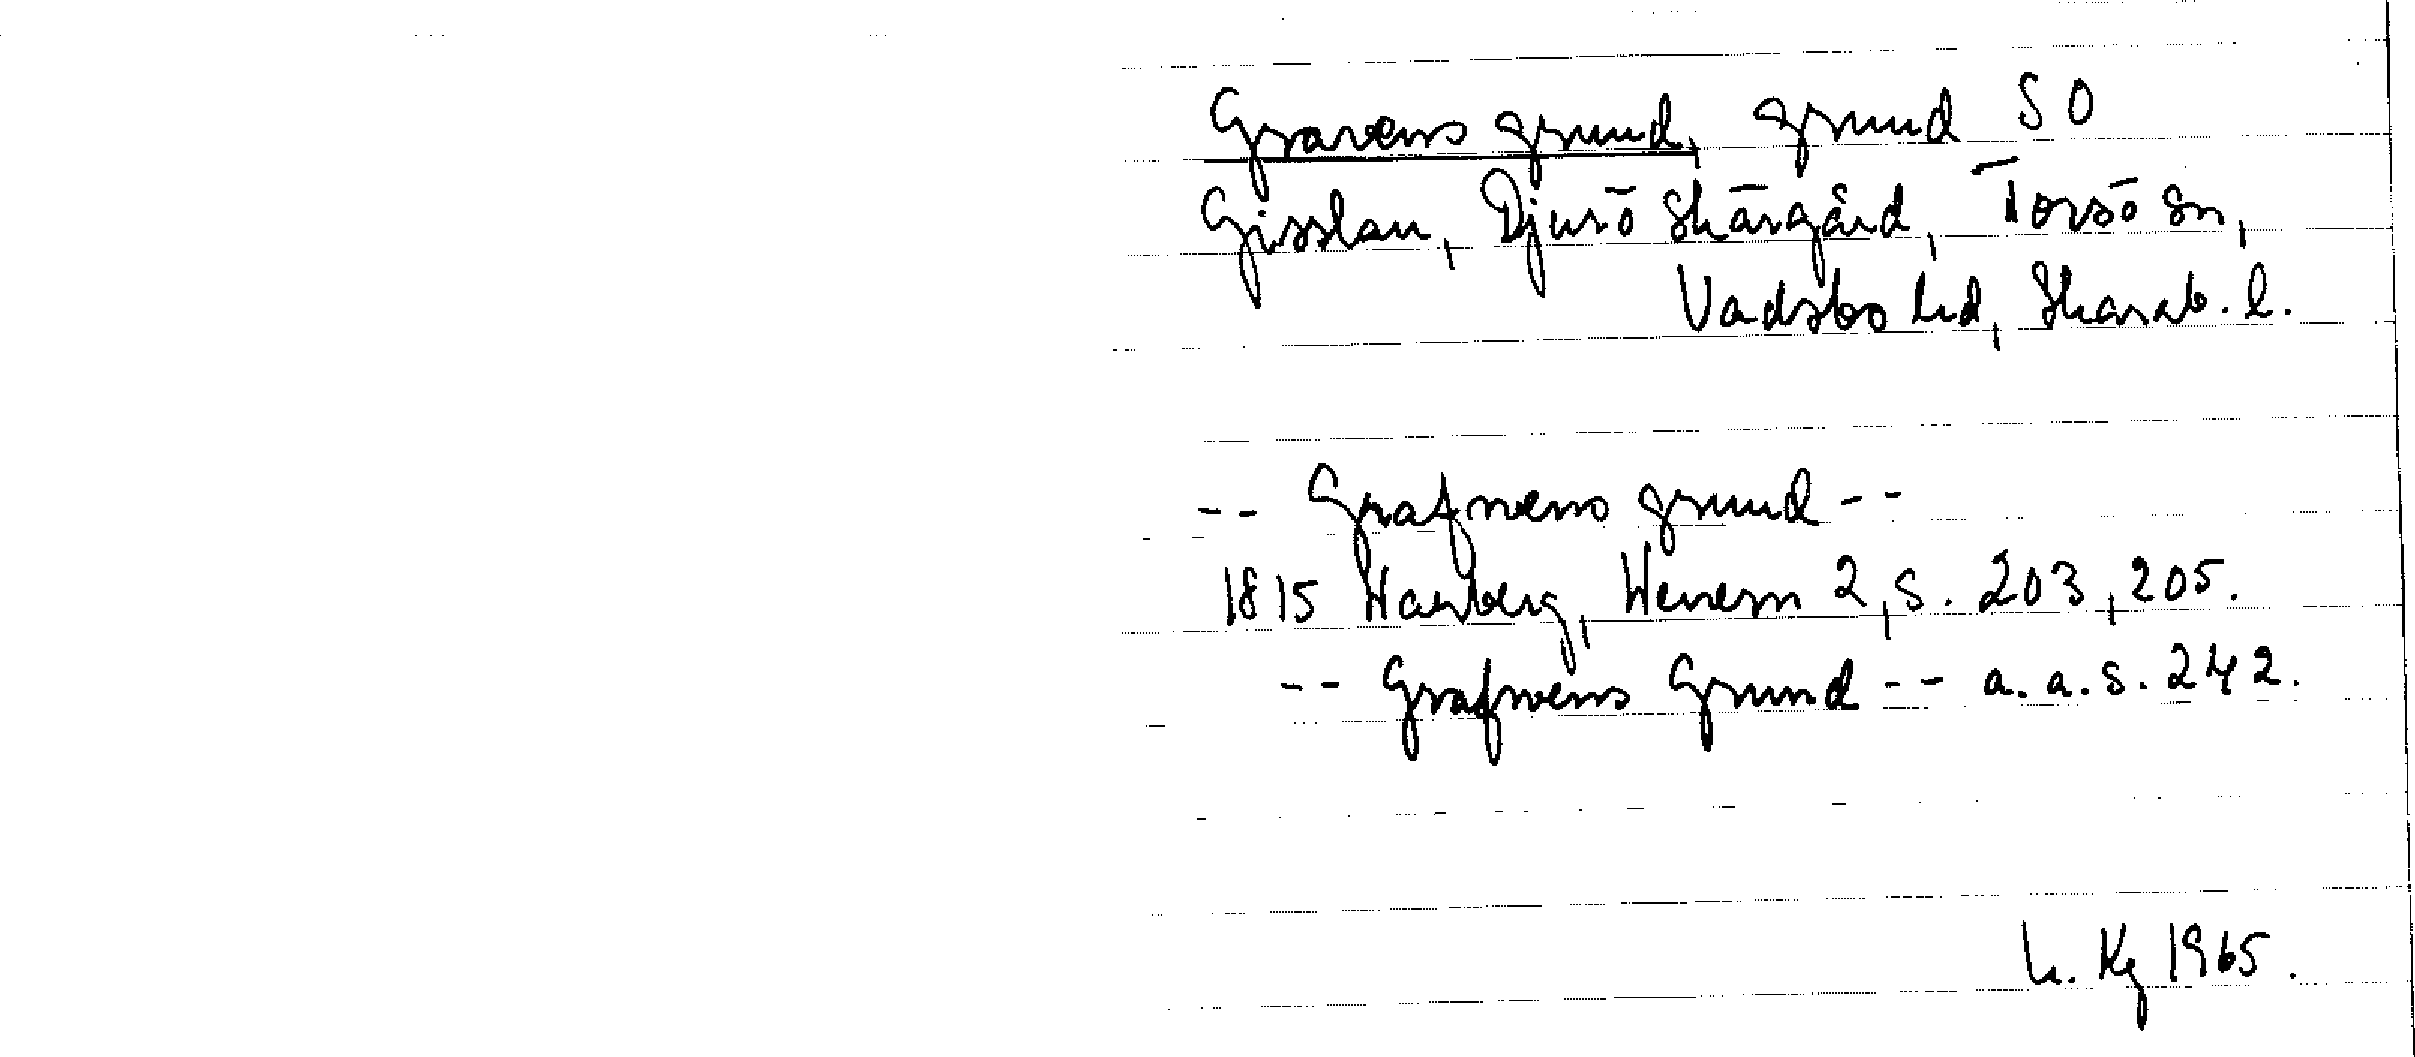 Gravens grund, grund SO
Gisslan, Djurö skärgård, Torsö sn,
Vadsbo hd, Skarab. l.
-- Grafvens grund --
1815 Warberg, Wenern 2, s. 203, 205.
-- Grafvens Grund -- a. a. s. 242.
h. Kg 1965.